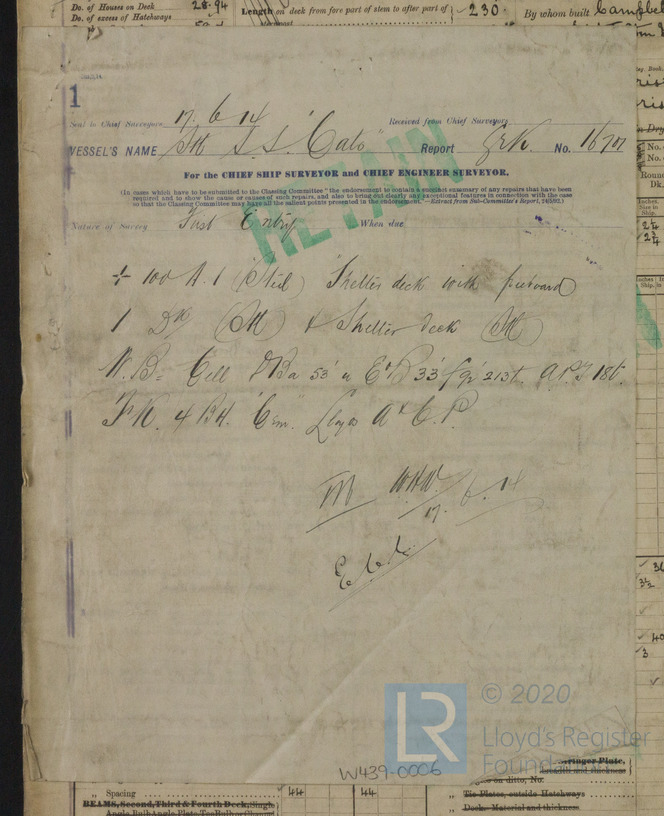 Do. of Houses on Deck 28.94
Do. of excess of Hatchways
Length on deck from fore part of stem to after part of 230
By whom built Campbel
1
Sent to Chief Surveyors 17. 6 14 Received from Chief Surveyors
VESSEL'S NAME Stl S.S. "Cato" Report No. 16707
For the CHIEF SHIP SURVEYOR and CHIEF ENGINEER SURVEYOR.
(In cases which have to be submitted to the Classing Committee "the endorsement to contain a succinct summary of any repairs that have been
required and to show the cause or causes of such repairs, and also to bring out clearly any exceptional features in connection with the case
so that the Classing Committee may have all the salient points presented in the endorsement."—Extract from Sub-Committee's Report,
RETAIN
Nature of Survey First Entry When due
100 A.1 (Steel) Shelter deck with freeboard
1 Dk (Stl) & Shelter deck (Stl)
W.B= Cell DBa 53' u E&B 33' f 213t. A.P.T 18t.
F.K. 4 BH. "Cem." Lloyds A & C.P.
17. 6. 14
© 2020
LR
Lloyd's Register
Foundation
W439-0006
Spacing 44 44
BEAMS, Second, Third & Fourth Deck, Single
stringer Plate,
breadth and thickness
on ditto, No.
Tie Plates, outside Hatchways
Decks: Material and thickness